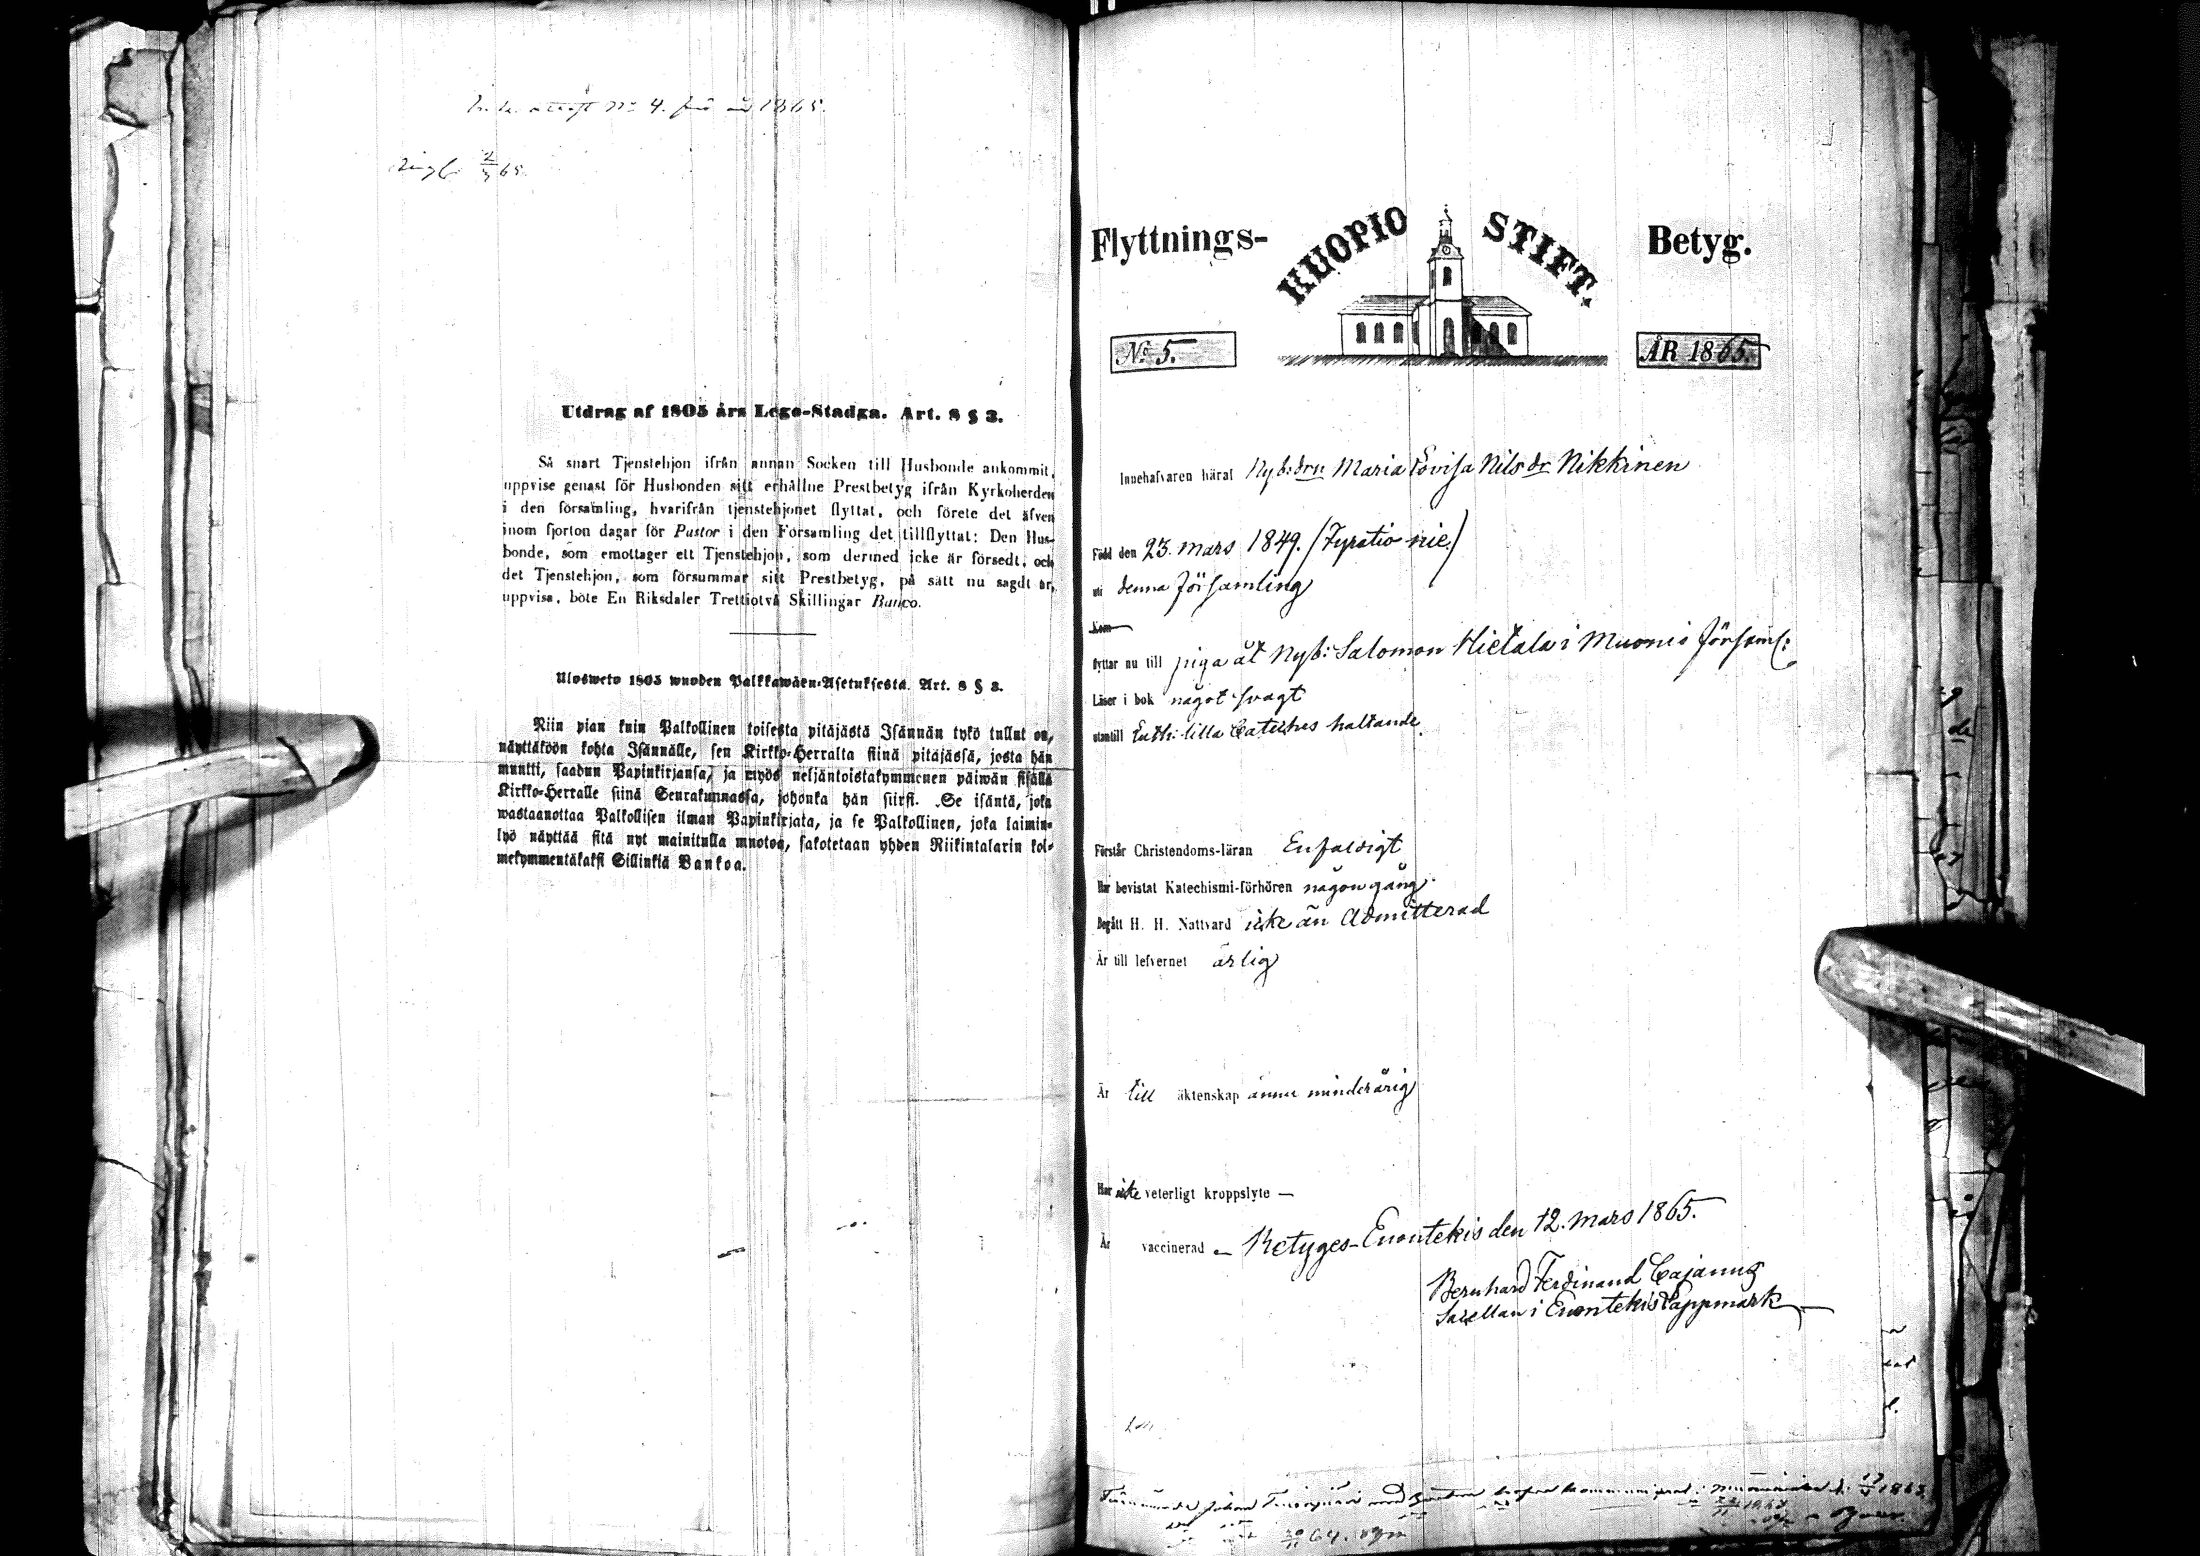 attest No 4. för år 1865.
2/3 65.
Utdrag af 1805 års Lego-Stadga. Art. 8 § 3.
Så snart Tjenstehjon ifrån annan Socken till Husbonde ankommit,
uppvise genast för Husbonden sitt erhållne Prestbetyg ifrån Kyrkoherden
i den församling, hvarifrån tjenstehjonet flyttat, och förete det äfven
inom fjorton dagar för Pastor i den Församling det tillflyttat: Den Hus-
bonde, som emottager ett Tjenstehjon, som dermed icke är försedt, och
det Tjenstehjon, som försummar sitt Prestbetyg, på sätt nu sagdt är,
uppvisa, böte En Riksdaler Trettiotvå Skillingar Banco.
Ulosweto 1805 wuoden Palkkawäen-Asetuksesta. Art. 8 § 3.
Niin pian kuin Palkollinen toisesta pitäjästä Isännän tykö tullut on,
näyttäköön kohta Isännälle, sen Kirkko-Herralta siinä pitäjässä, josta hän
muutti, saadun Papinkirjansa, ja myös neljäntoistakymmenen päiwän sisällä
Kirkko-Herralle siinä Seurakunnassa, johonka hän siirsi. Se isäntä, joka
wastaanottaa Palkollisen ilman Papinkirjata, ja se Palkollinen, joka laimin-
lyö näyttää sitä nyt mainitulla muotoa, sakotetaan yhden Riikintalarin kol-
mekymmentäkaksi Sillinkiä Bankoa.
Flyttnings- KUOPIO STIFT. Betyg.
No 5. ÅR 1865.
Innehafvaren häraf Nyb:drn Maria Lovisa Nilsdr Nikkinen
Född den 23. mars 1849. (Fyratio nie.)
uti denna församling
Kom
flyttar nu till piga åt Nyb: Salomon Hietala i Muonio församl:
Läser i bok något svagt
utantill Luth: lilla Cateches haltande.
Förstår Christendoms-läran Enfaldigt
Har bevistat Katechismi-förhören någon gång.
Begått H. H. Nattvard icke än Admitterad
Är till lefvernet ärlig
Är till äktenskap ännu minderårig
Har icke veterligt kroppslyte —
Är vaccinerad — Betyges- Enontekis den 12. Mars 1865.
Bernhard Ferdinand Cajanus
Sacellan i Enontekis Lappmark